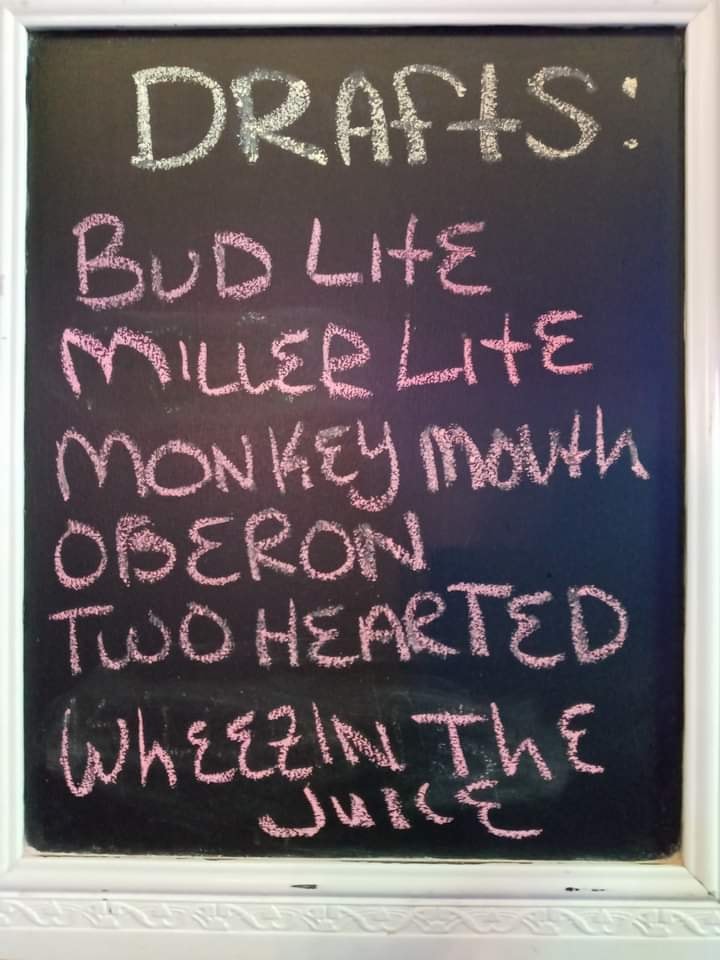 DRAFTS:
BUD LITE
MILLER LITE
MONKEY MOUTH
OBERON
TWO HEARTED
WHEEZIN THE
JUICE